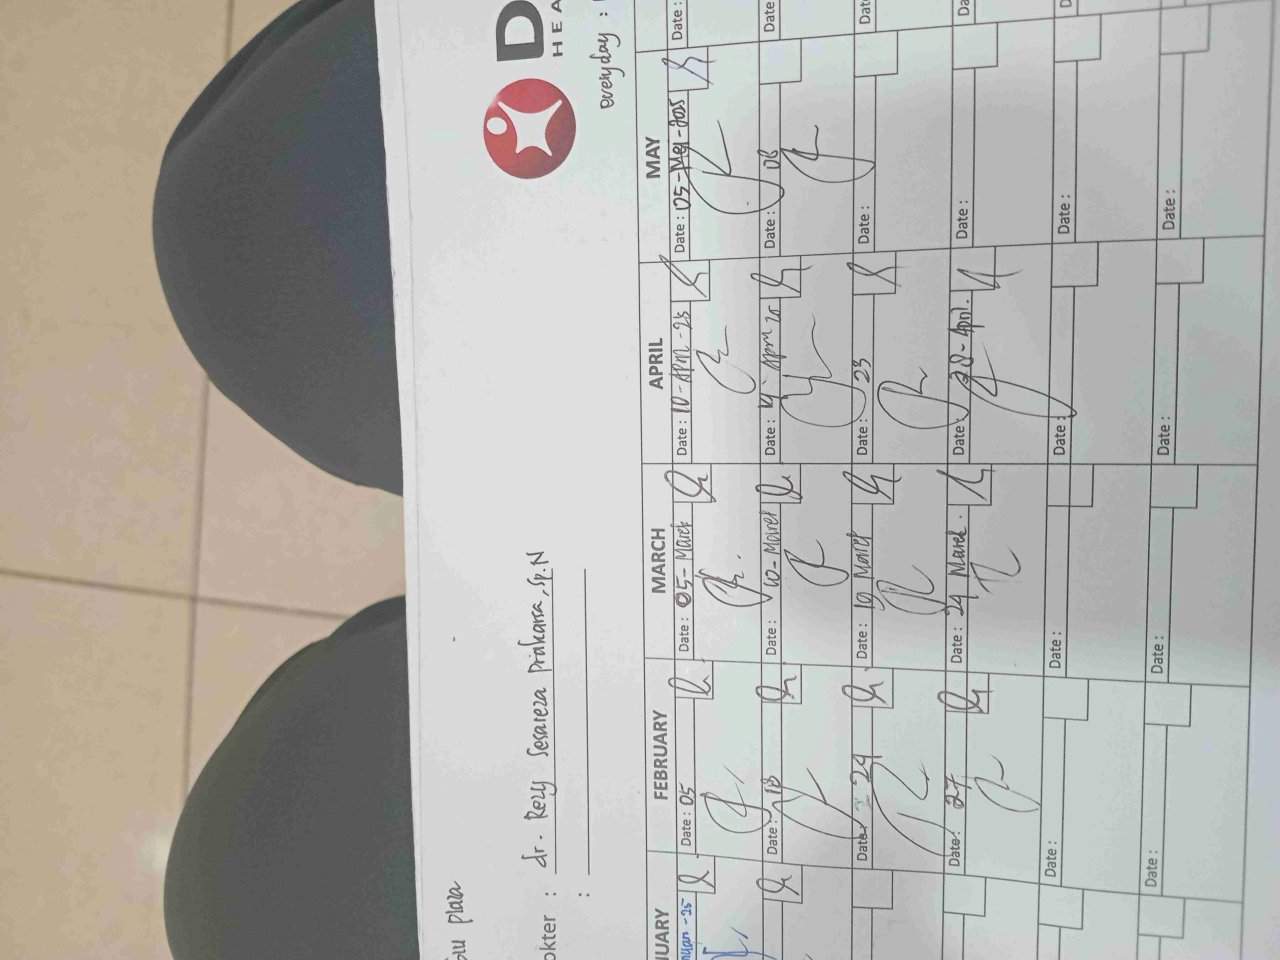 D
HEA
everyday :
Plaza
okter : dr. Rezy Sesareza Prakarsa, Sp.N
:
NUARY FEBRUARY MARCH APRIL MAY
-25 Date : 05 Date : 05-Maret Date : 10-April-25 Date : 05-Mei-205 Date :
Date : 18 Date : 10-Maret Date : April 25 Date : 06 Date
Date : 24 Date : 19 Maret Date : 23 Date : Dat
Date : 27 Date : 24 Maret. Date : 28-April. Date : Da
Date : Date : Date : Date : D
Date : Date : Date : Date :